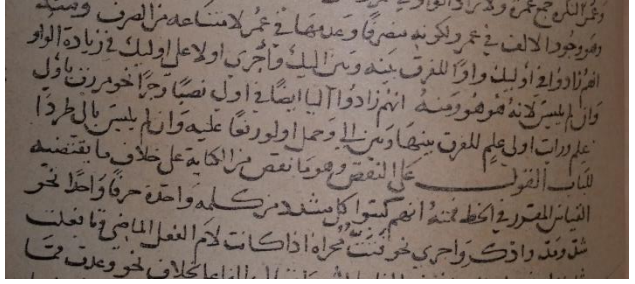 وعمر النكرة جمع عمرة ولا زادوا الواو
وهو وجود الالف في عمر ولكونه منصرفا وعدمها في عمر لامتناعه من الصرف ومنه
انهم زادوا في اوليك واوا للفرق بينه وبين اليك واجرى اولا على اوليك في زيادة الواو
وان لم يلبس لانه هو هو ومنه انهم زادوا ايضا في اولي نصبا وجرا نحو مررت باولي
علم ورايت اولي علم للفرق بينها وبين الى وحمل اولو رفعا عليه وان لم يلبس بالى طردا
للباب القول على النقص وهو ما نقص من الكتابة على خلاف ما يقتضيه
القياس المقرر في الخط فمنه انهم كتبوا كل مشدد من كلمة واحدة حرفا واحدا نحو
شد ومد وادكر واجري نحو قتت مجراه اذا كانت لام الفعل الماضي تا فعلت